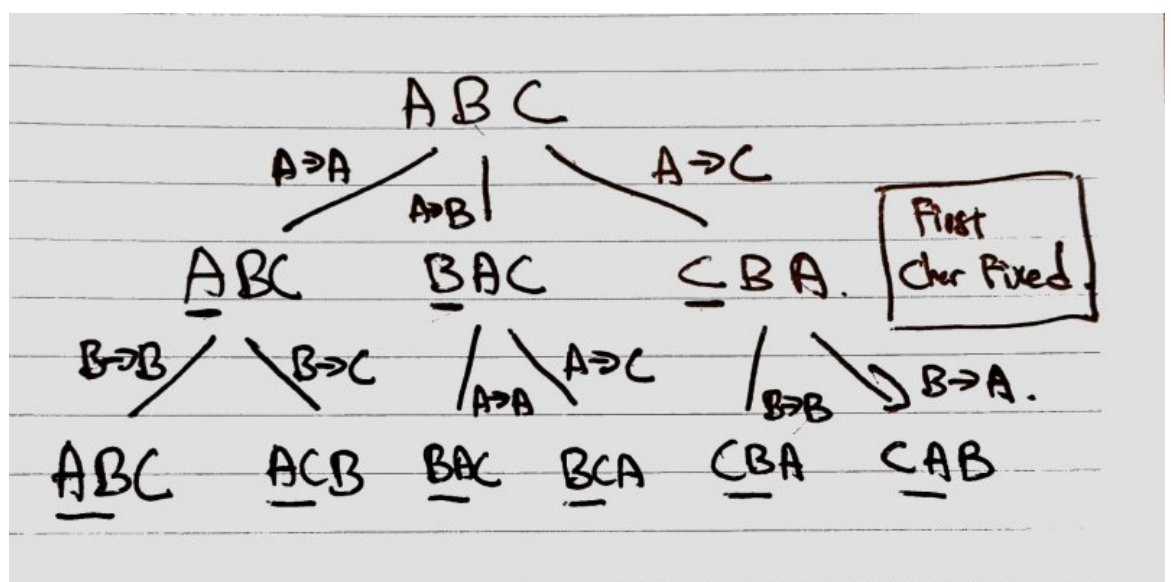 A B C
A→A
A→B
A→C
First
Char Fixed.
ABC
BAC
CBA.
B→B
B→C
A→A
A→C
B→B
B→A.
ABC
ACB
BAC
BCA
CBA
CAB